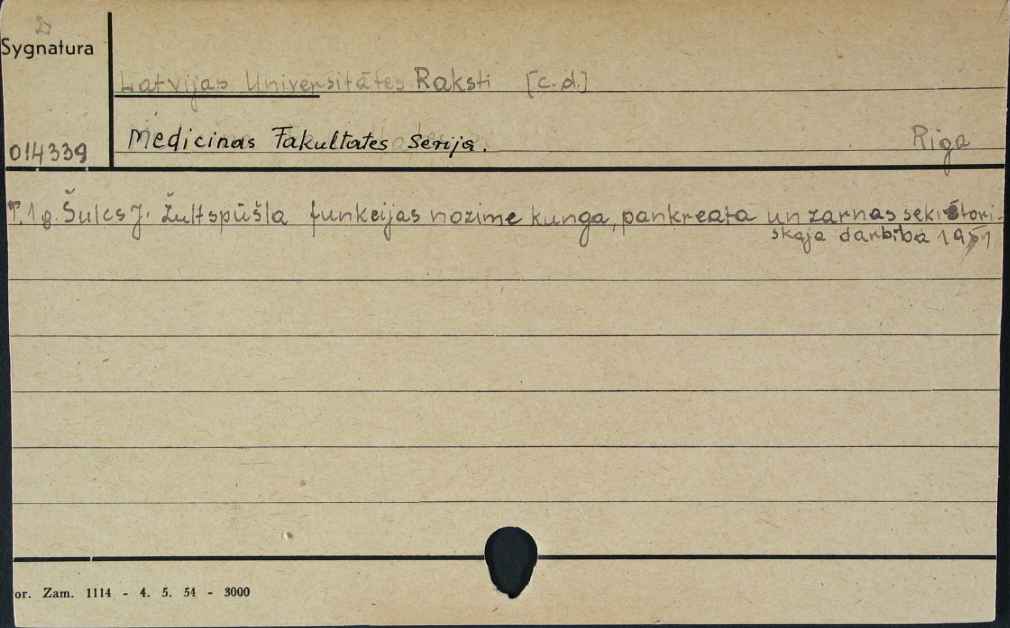 Sygnatura
Latvijas Universitātes Raksti [c.d.]
Medicinas Fakultates Serija.
Riga
014339
T. 1 g. Šulcs J. Žultspūšla funkcijas nozime kunga, pankreata un zarnas sekrētori-
skaja darbiba 1931
or. Zam. 1114 - 4. 5. 54 - 3000